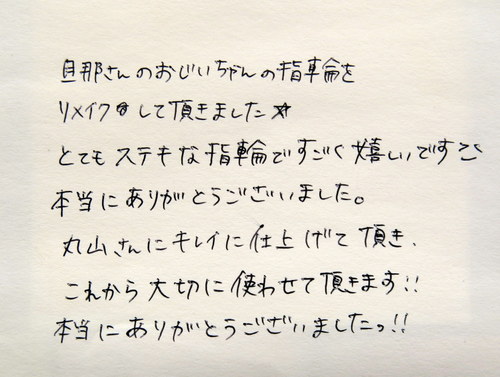 旦那さんのおじいちゃんの指輪を
リメイクして頂きました☆
とてもステキな指輪ですごく嬉しいです
本当にありがとうございました。
丸山さんにキレイに仕上げて頂き、
これから大切に使わせて頂きます!!
本当にありがとうございましたっ!!